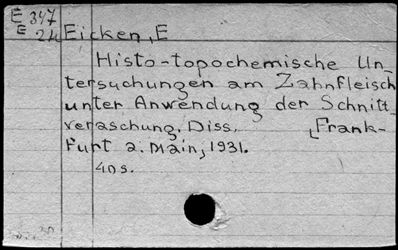 E 347
E 24 Eicken, E
Histo-topochemische Un-
tersuchungen am Zahnfleisch
unter Anwendung der Schnitt-
veraschung. Diss. Frank-
furt a. Main, 1931.
40 s.